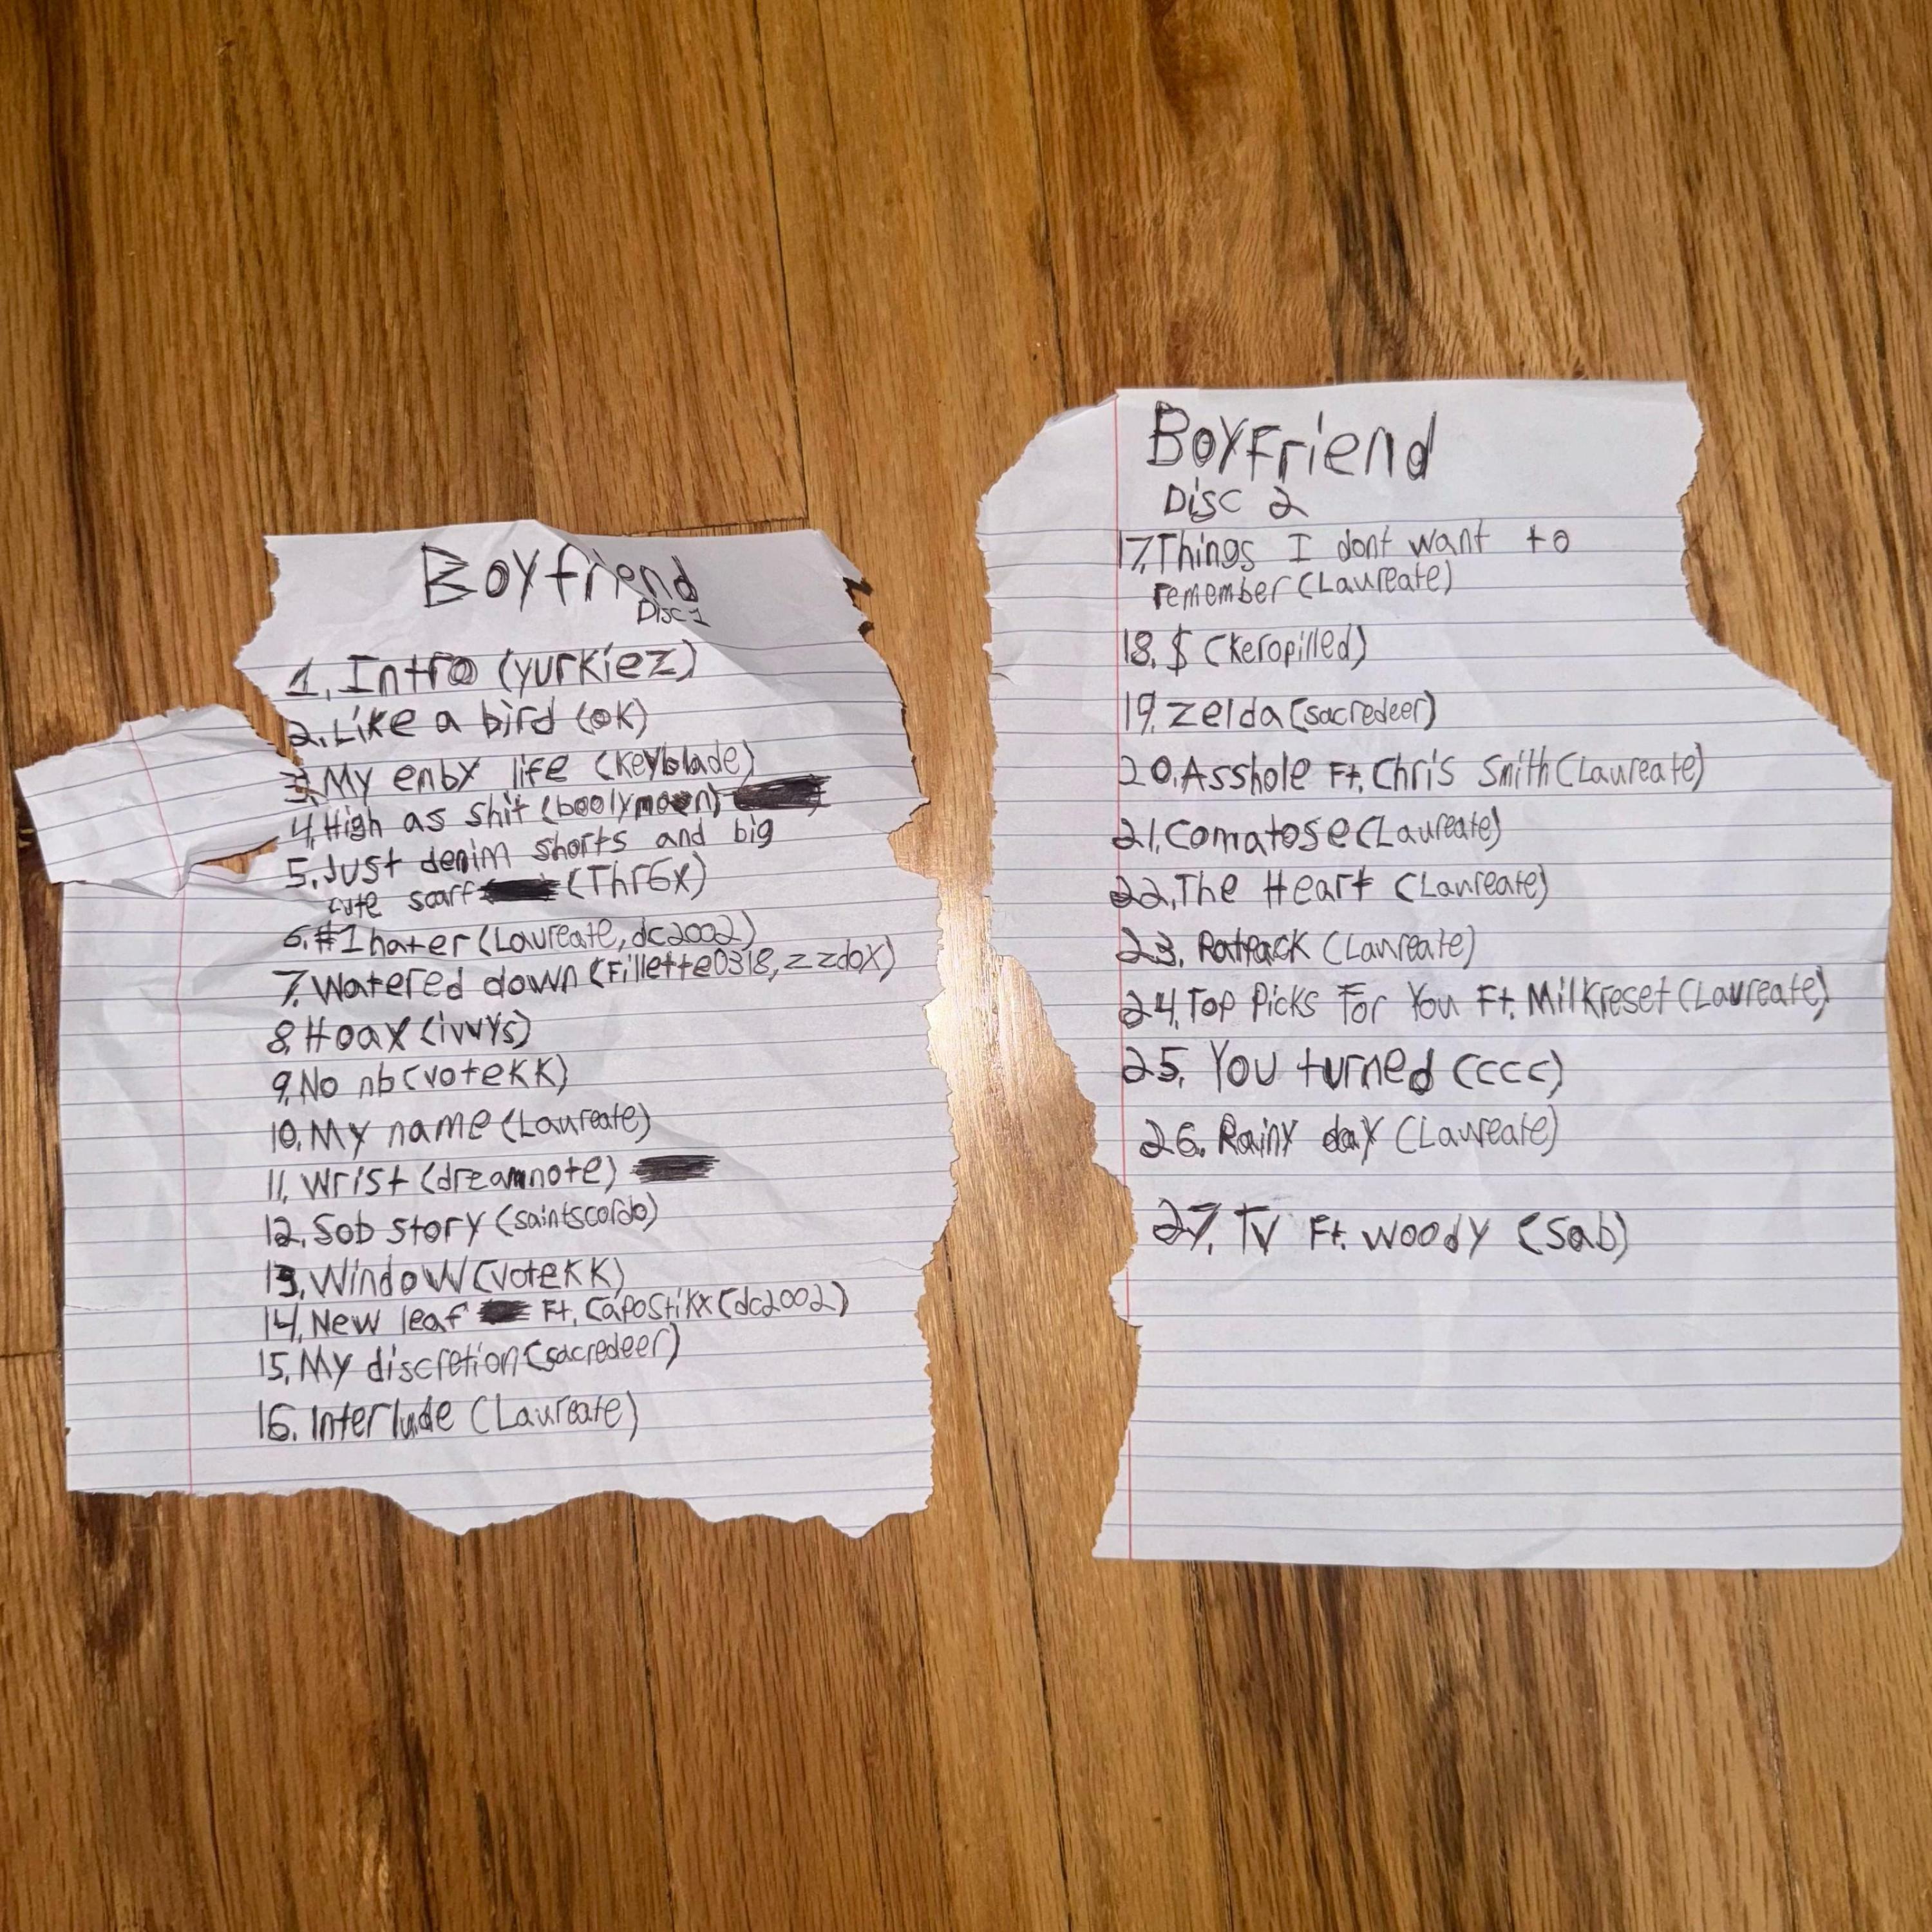 Boyfriend
Disc 1
1. Intro (yurkiez)
2. Like a bird (ok)
3. My enby life (keyblade)
4. High as shit (boolymoon)
5. Just denim shorts and big
cute scarf (Thr6x)
6. #1 hater (Laureate, dc2002)
7. Watered down (Fillette0318, zzdox)
8. Hoax (ivvys)
9. No nb (votekk)
10. My name (Laureate)
11. Wrist (dreamnote)
12. Sob story (saintscordo)
13. Window (votekk)
14. New leaf Ft. Capostikx (dc2002)
15. My discretion (sacredeer)
16. Interlude (Laureate)
Boyfriend
Disc 2
17. Things I dont want to
remember (Laureate)
18. $ (keropilled)
19. Zelda (sacredeer)
20. Asshole Ft. Chris Smith (Laureate)
21. Comatose (Laureate)
22. The Heart (Laureate)
23. Ratpack (Laureate)
24. Top Picks For You Ft. Milkreset (Laureate)
25. You turned (cccc)
26. Rainy day (Laureate)
27. TV Ft. Woody (Sab)